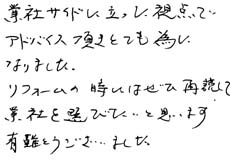 業者サイドに立った視点で
アドバイス頂きとても為に
なりました。
リフォームの時にはぜひ再読して
業者を選びたいと思います
有難とうございました